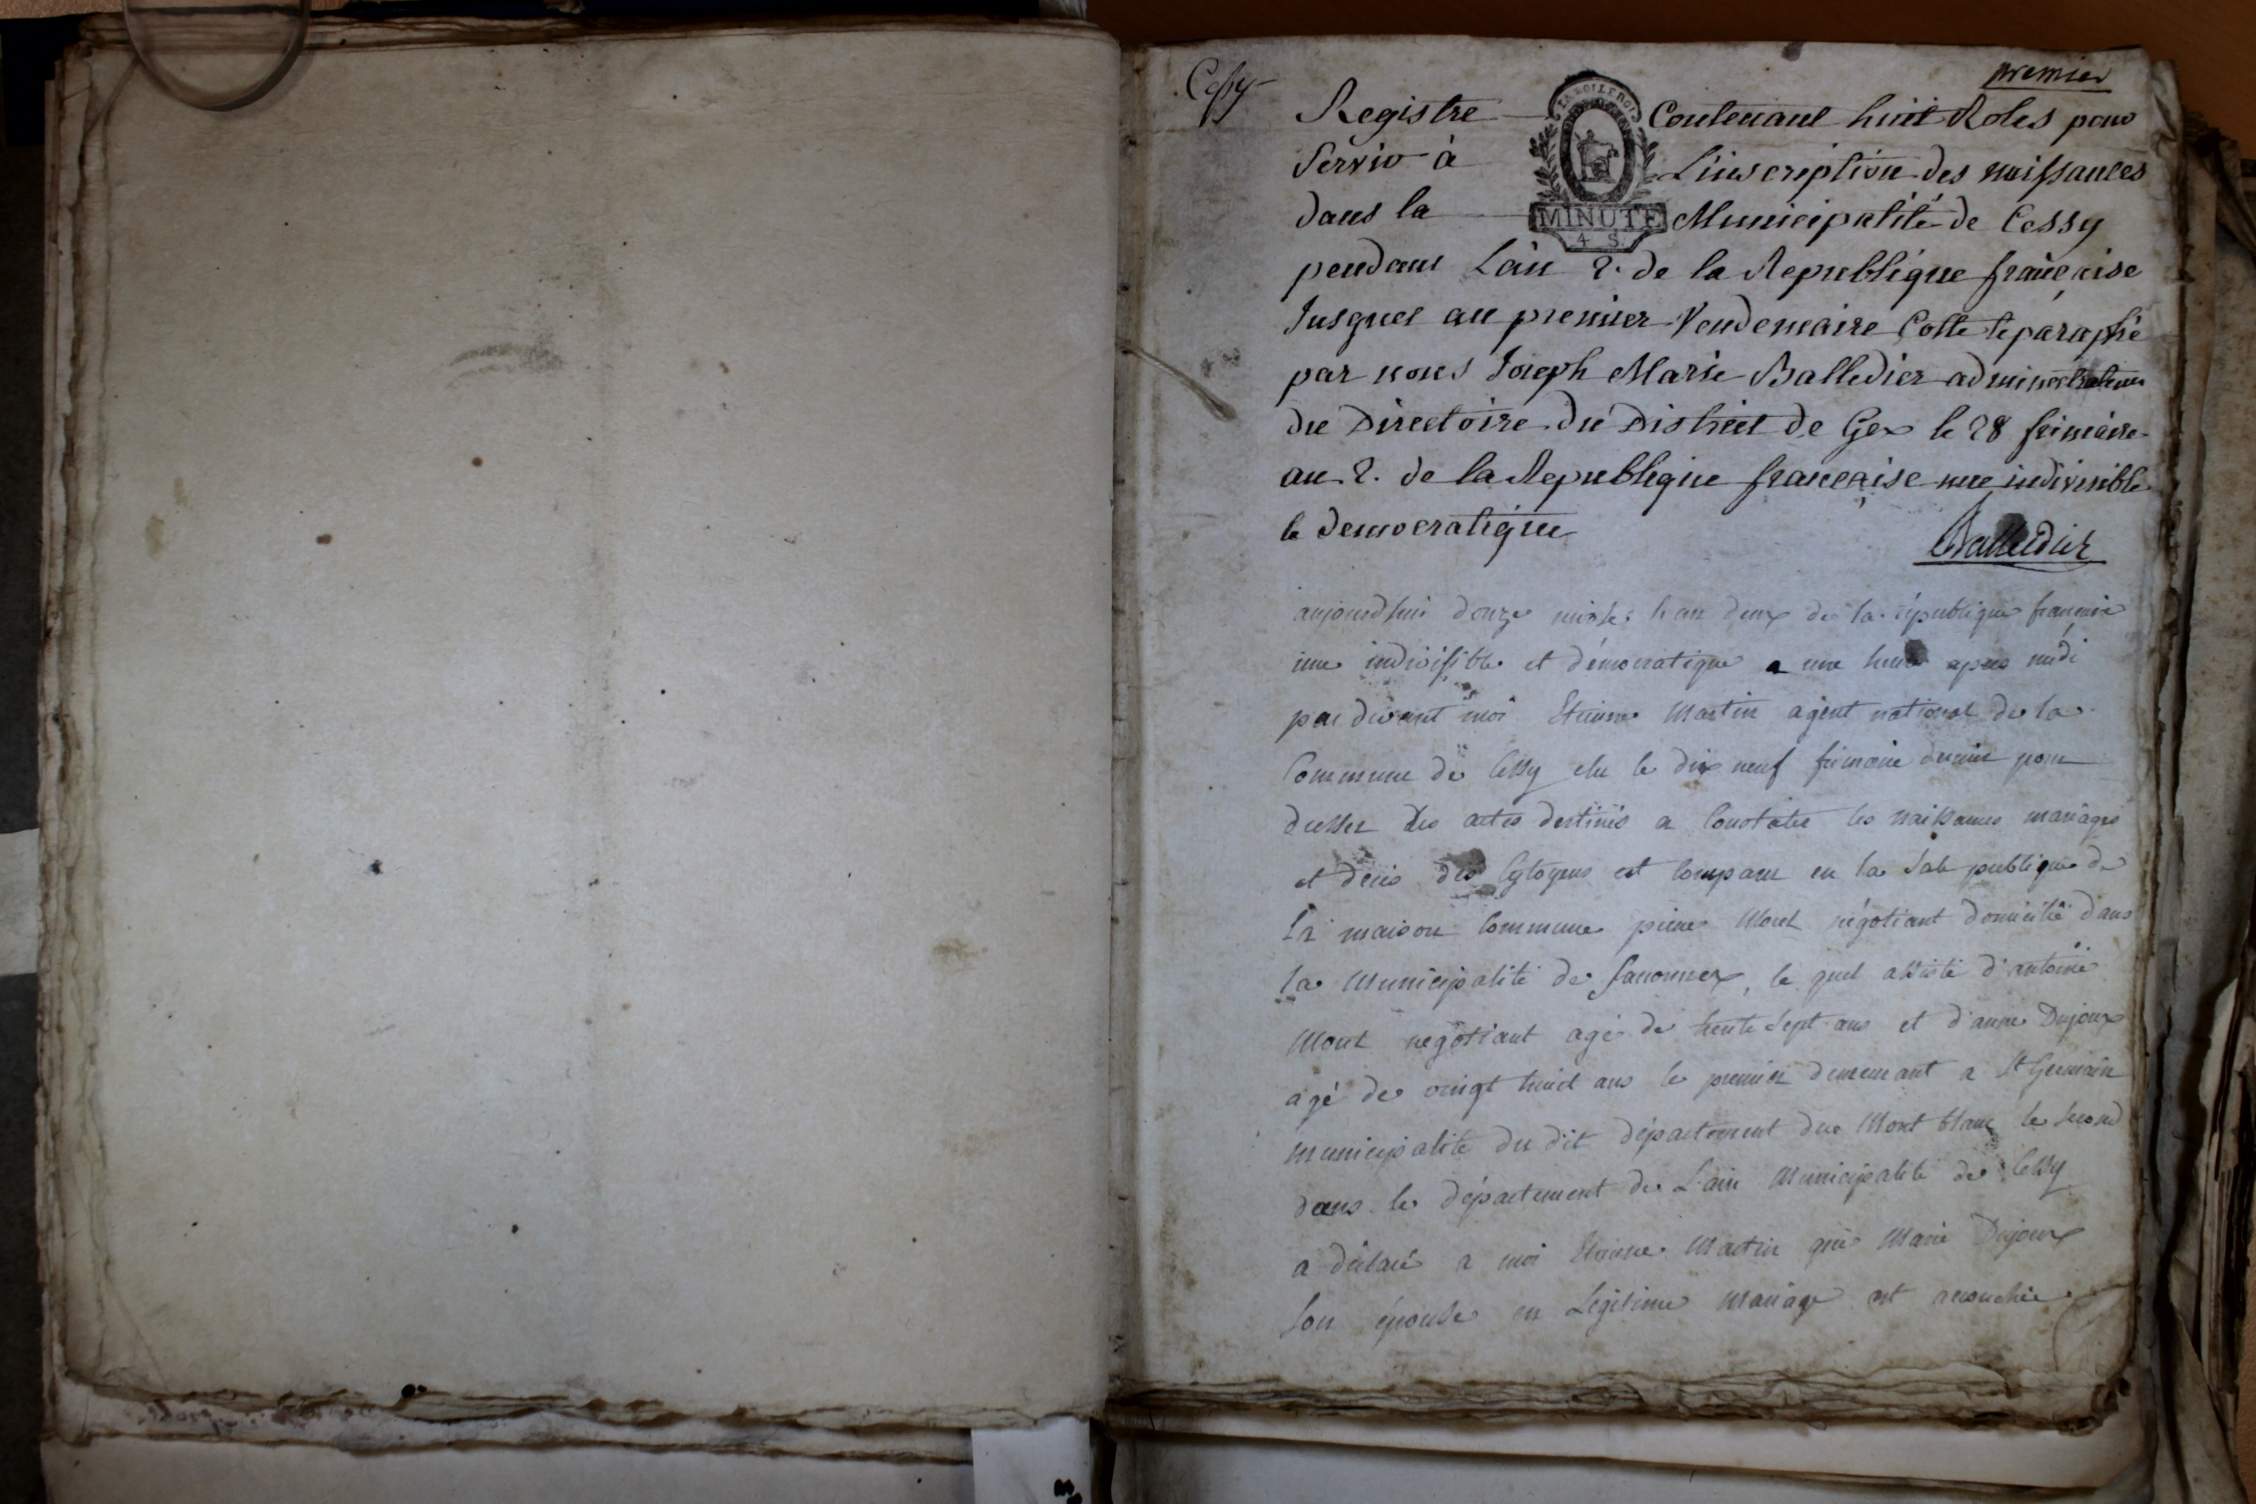 premier
Cessy
Registre Contenant huit Roles pour
Servir à L'inscription des naissances
LA LOI LE ROI
dans la Municipalité de Cessy
MINUTE
4 S.
pendant L'an 2. de la Republique française
Jusques au premier Vendemaire Cotté et paraphé
par nous Joseph Marie Balledier administrateur
du Directoire du District de Gex le 28 frimaire
an 2. de la Republique française une indivisible
et democratique
Balleidier
aujourdhui douze nivose lan deux de la république française
une indivisible et démocratique a une heure apres midi
par devant moi Etienne Martin agent national de la
Commune de Cessy elu le dix neuf frimaire dernier pour
dresser des actes destinés a Constater les naissances mariages
et décés des Cytoyens est comparu en la Sale publique de
la maison Commune pierre Monet négotiant domicilié dans
la Municipalité de Sauconnex, le quel assisté d'antoine
Monet negotiant agé de trente Sept ans et d'anne Dujoux
agé de vingt huit ans le premier demeurant a St Germain
municipalité du dit département du Mont blanc le second
dans le département de L'ain Municipalité de Cessy
a déclaré a moi Etienne Martin que Marie Dujoux
Son épouse en Légitime mariage est accouchée